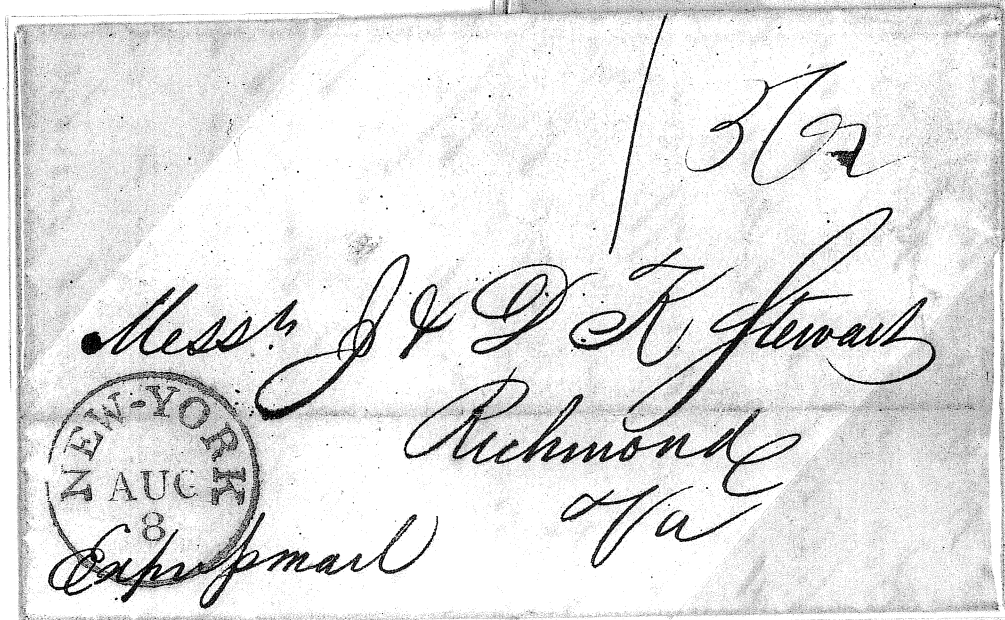 Messrs J & D K Stewart
Richmond
Va
NEW-YORK
AUG
8
Express mail